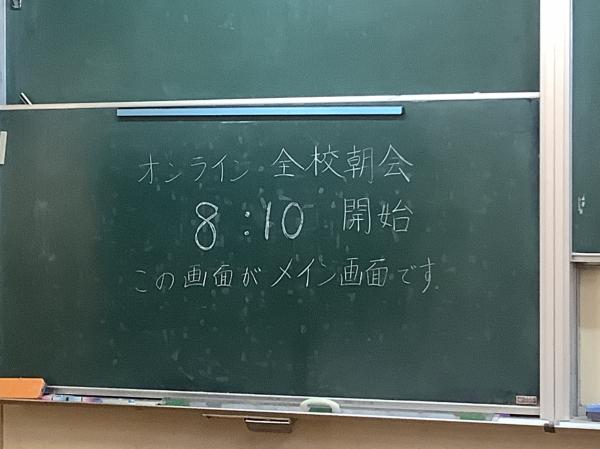 オンライン 全校朝会
8:10 開始
この画面がメイン画面です